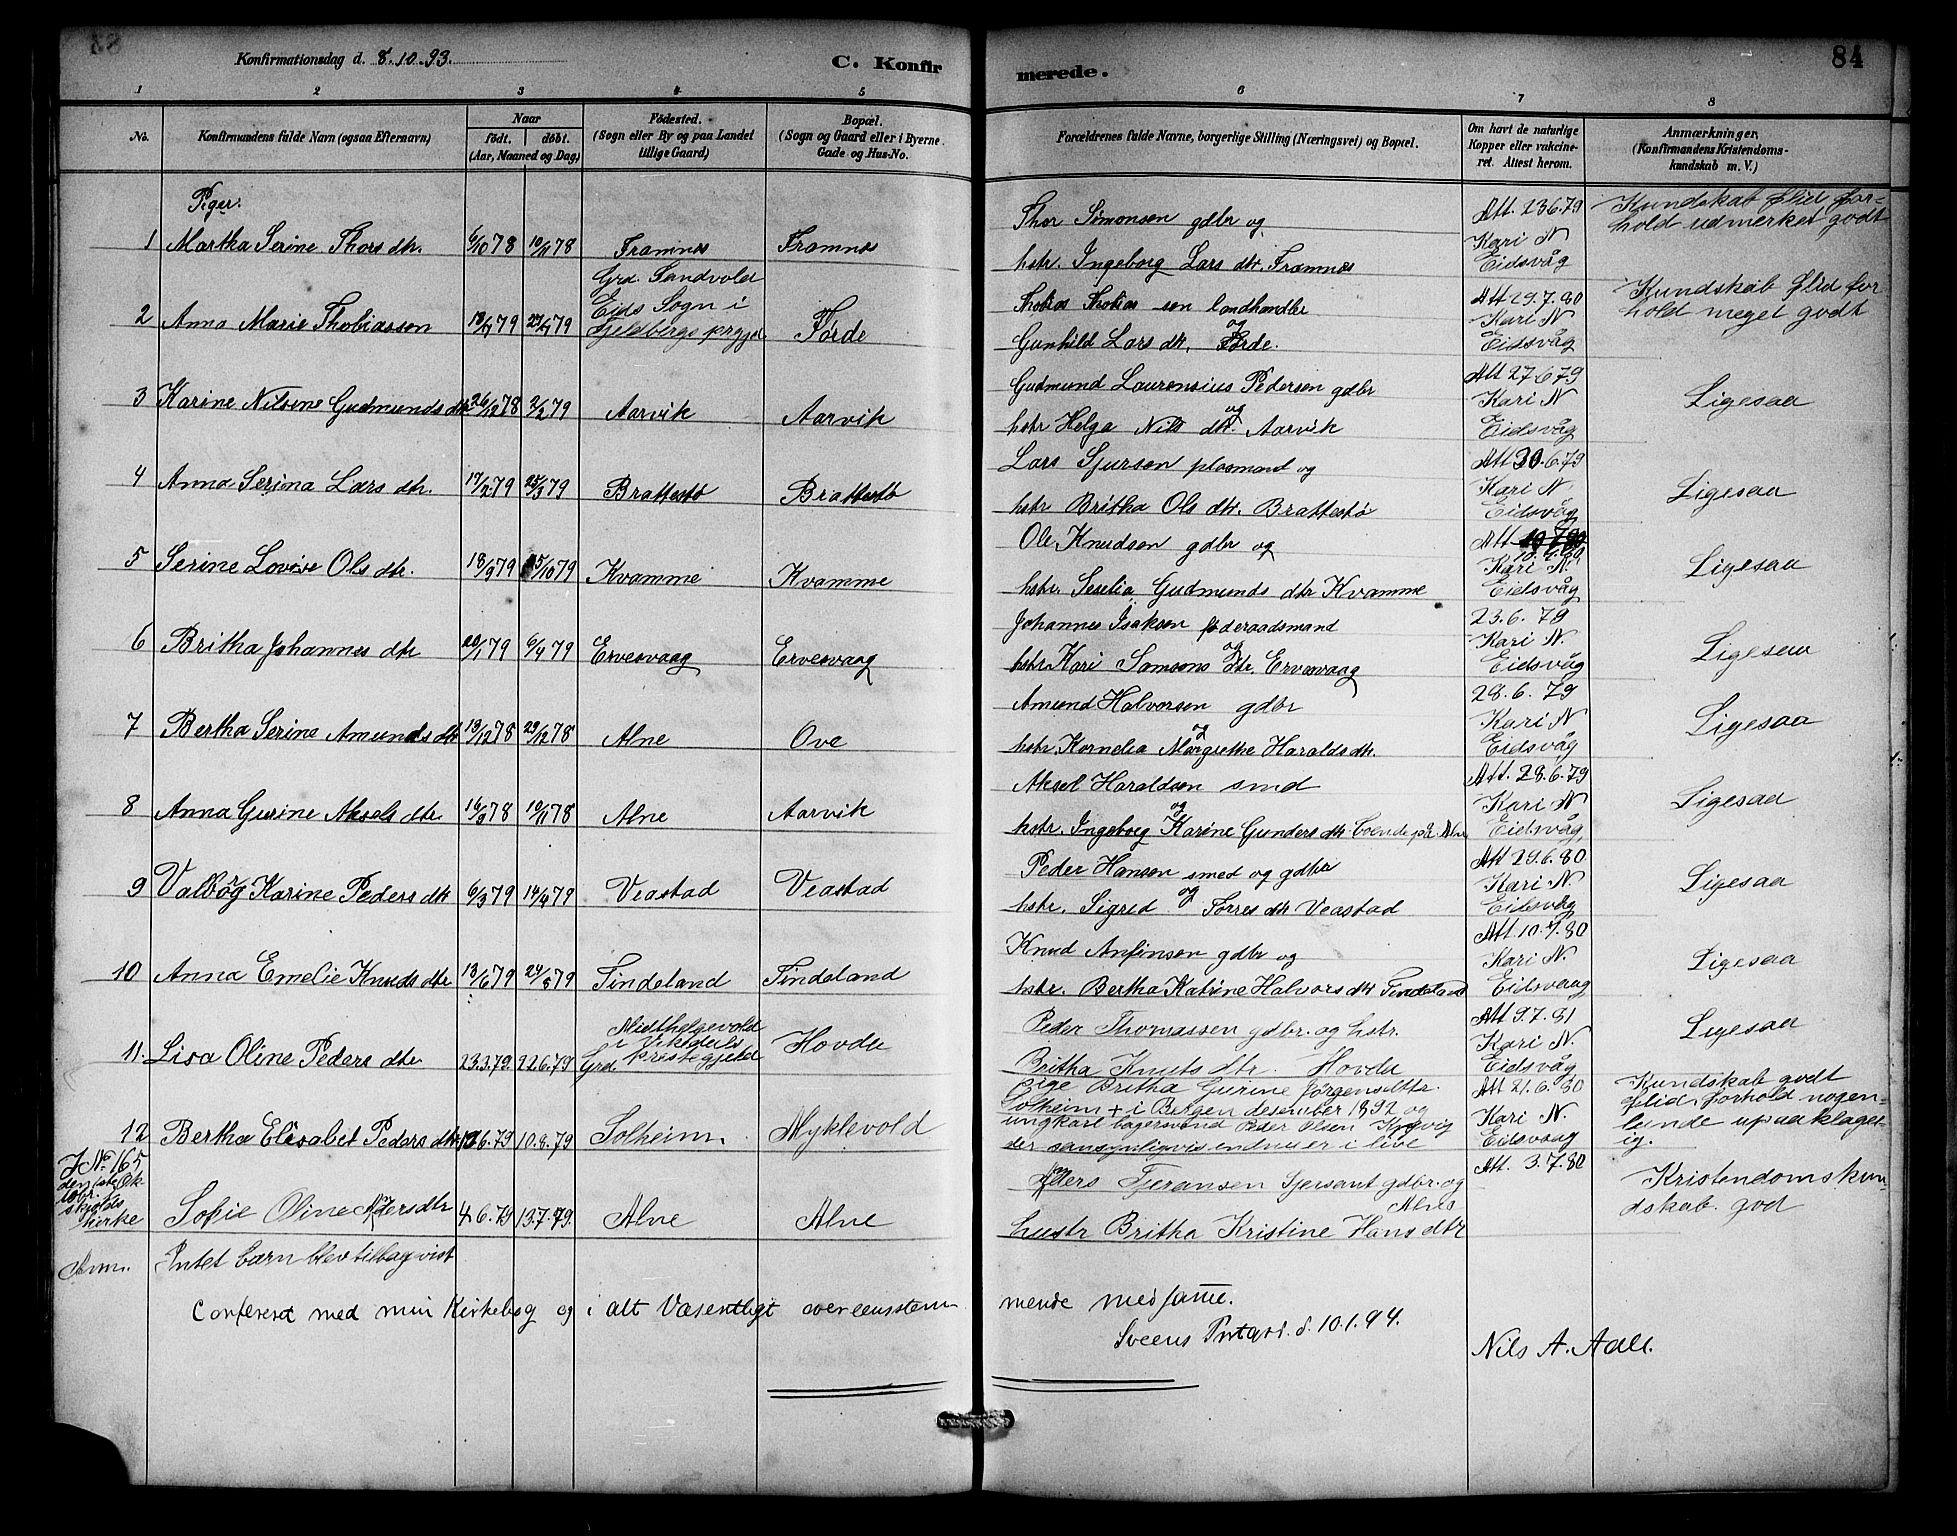 Konfirmationsdag d. 8.10.93.
C. Konfirmerede.
84
1 2 3 4 5 6 7 8
No.
Konfirmandens fulde Navn (ogsaa Efternavn)
Naar
født. døbt.
(Aar, Maaned og Dag)
Fødested.
(Sogn eller By og paa Landet
tillige Gaard)
Bopæl.
(Sogn og Gaard eller i Byerne
Gade og Hus-No.
Forældrenes fulde Navne, borgerlige Stilling (Næringsvei) og Bopæl.
Om havt de naturlige
Kopper eller vakcine-
ret. Attest herom.
Anmærkninger,
(Konfirmandens Kristendoms-
kundskab m. V.)
Piger:
1 Martha Serine Thors dtr. 6/10 78 10/11 78 Framnes Framnes
Thor Simonsen gdbr og
hstr. Ingeborg Lars dtr. Framnes
Att. 23.6.79
Kari N
Eidsvåg
Kundskab flid for-
hold udmerket godt
2 Anna Marie Thobiassen 18/4 79 27/4 79
Grd. Sandvold
Eids Sogn i
Fjeldbergs prgjd
Førde
Thobias Thobias sen landhandler
og
Gunhild Lars dtr. Førde.
Att 29.7.80
Kari N
Eidsvåg
Kundskab flid for
hold meget godt
3 Karine Nilsine Gudmunds dtr 26/12 78 2/2 79 Aarvik Aarvik
Gudmund Laurensius Pedersen gdbr
og
hstr Helga Nils dtr. Aarvik
Att 27.6.79
Kari N
Eidsvåg
Ligesaa
4 Anna Serina Lars dtr. 17/2 79 23/3 79 Brattestø Brattestø
Lars Sjursen plasmand og
hstr Britha Ols dtr. Brattestø
Att 30.6.79
Kari N.
Eidsvåg
Ligesaa
5 Serine Lovise Ols dtr. 18/9 79 5/10 79 Kvamme Kvamme
Ole Knudsen gdbr og
hstr. Seselia Gudmunds dtr Kvamme
Att
Kari N.
Eidsvåg
Ligesaa
6 Britha Johannes dtr 20/1 79 6/4 79 Ervesvaag Ervesvaag
Johannes Isaksen føderaadsmand
og
hstr Kari Samsons dtr. Ervesvaag
23.6.79
Kari N.
Eidsvåg
Ligesaa
7 Bertha Serine Amunds dtr 13/12 78 29/12 78 Alne Ove
Amund Halvorsen gdbr
og
hstr. Kornelia Margrethe Haralds dtr.
28.6.79
Kari N
Eidsvåg
Ligesaa
8 Anna Gurine Aksels dtr. 16/9 78 10/11 78 Alne Aarvik
Aksel Haraldsen smd
og
hstr. Ingeborg Karine Gunders dtr boende på Alne
Att. 28.6.79
Kari N
Eidsvåg,
Ligesaa
9 Valborg Karine Peders dtr 6/3 79 14/4 79 Veastad Veastad
Peder Hansen smed og gdbr
og
hstr. Sigrid Torres dtr Veastad
Att 29.6.80
Kari N.
Eidsvåg
Ligesaa
10 Anna Emelie Knuds dtr 13/6 79 24/8 79 Tindeland Tindeland
Knud Anfinsen gdbr og
hstr. Bertha Katrine Halvors dtr Tindeland
Att. 10.7.80
Kari N.
Eidsvaag
Ligesaa
11. Lisa Oline Peders dtr 23.3.79 22.6.79
Midthelgevold
i Vikedals
Grd. prestegjeld
Hovda
Peder Thomassen gdbr. og hstr.
Britha Knuts dtr. Hovda
Att 9.7.81
Kari N.
Eidsvåg
Ligesaa
12 Bertha Elisabet Peders dtr 6.79 10.8.79 Solheim. Myklevold
Pige Britha Gurine Jørgensdtr.
Solheim + i Bergen desember 1892 og
ungkarl bagersvend Peder Olsen
der sansynligvis endnu er i live
Att 21.6.80
Kari N.
Eidsvaag
Kundskab godt
flid, forhold nogen-
lunde upaaklagel-
ig.
J No 165
den 1ste Ok-
tobr. i
skjolds
kirke
Sofie Oline Andersdtr 4.6.79 13.7.79. Alne Alne
Anders Tjeransen Sjersant gdbr. og
Alnes
hustr Britha Kristine Hans dtr
Att. 3.7.80
Kristendomskun-
dskab. god
Anm. Intet barn blev tilbagevist
Confereret med min Kirkebog og i alt Væsentligt overeensstemmende med samme.
Sveens Prstgrd. d. 10.1.94.
Nils A. Aall.